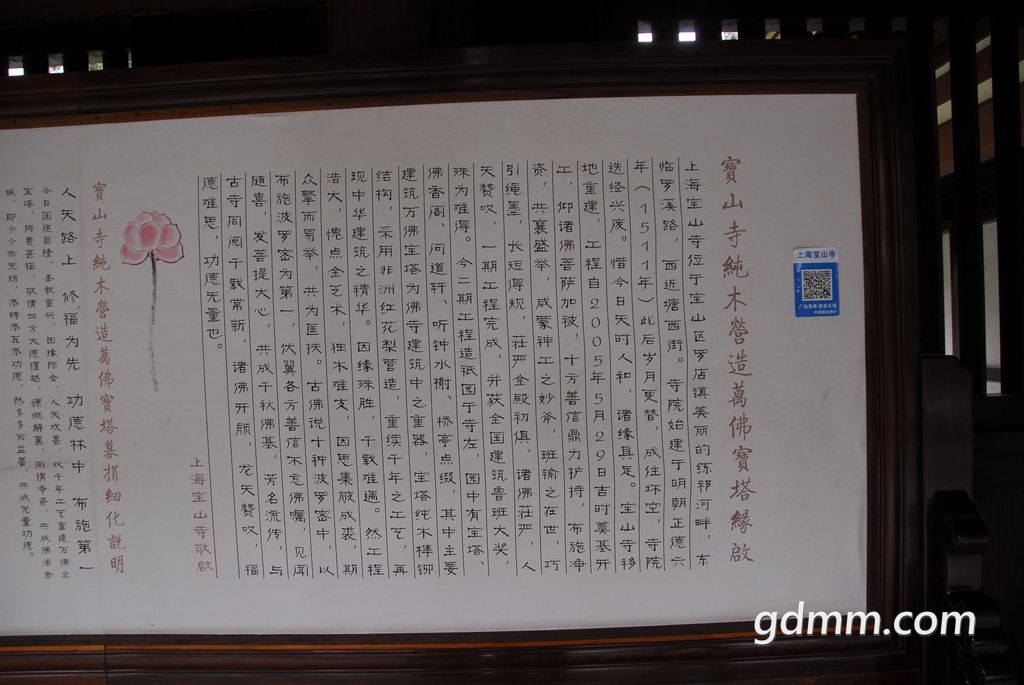 寶山寺純木營造萬佛寶塔緣啟
上海宝山寺位于宝山区罗店镇美丽的练祁河畔，东
临罗溪路，西近塘西街。寺院始建于明朝正德六
年（1511年）此后岁月更替，成住坏空，寺院
迭经兴废。惜今日天时人和，诸缘具足。宝山寺移
地重建，工程自2005年5月29日吉时奠基开
工，仰诸佛菩萨加被，十方善信鼎力护持，布施净
资，共襄盛举，咸蒙神工之妙茶，班输之在世，巧
引绳墨，长短得规，庄严金殿初俱，诸佛庄严，人
天赞叹，一期工程完成，并获全国建筑鲁班大奖，
殊为难得。今二期工程造祇园于寺左，园中有宝塔、
佛香阁、问道轩、听钟水榭、桥亭点缀，其中主要
建筑万佛宝塔为佛寺建筑中之重器，宝塔纯木榫铆
结构，采用非洲红花梨营造，重续千年之工艺，再
现中华建筑之精华。因缘殊胜，千载难遇。然工程
浩大，愧点金乏术，独木难支，因思集腋成裘，期
众擎而易举，共为匡扶。古佛说十种波罗密中，以
布施波罗密为第一，伏冀各方善信不忘佛嘱，见闻
随喜，发菩提大心，共成千秋佛基，芳名流传，与
古寺同阅千载常新，诸佛开颜，龙天赞叹，福
德难思，功德无量也。
上海宝山寺敬啟
寶山寺純木營造萬佛寶塔募捐細化説明
人天路上 修福为先 功德林中 布施第一
今日国运昌隆，圣教重兴，因缘际会，人天欢喜，以千年工艺重造万佛之
宝塔，所费甚钜，敬请四方大德檀越，慷慨解囊，同捐净资，共成佛法金
城，即少少亦无妨，添砖添瓦添功德，然多多而益善，共成无量功德。
上海宝山寺
gdmm.com